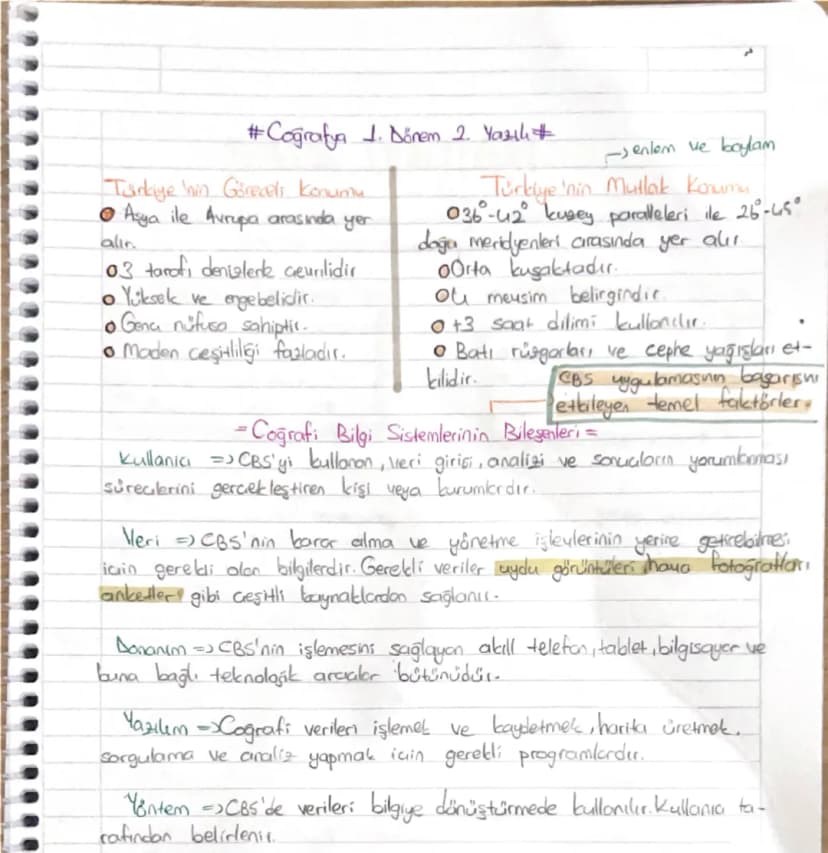 #Coğrafya 1. Dönem 2. Yazılı#
→ enlem ve boylam
Türkiye'nin Göreceli Konumu
Asya ile Avrupa arasında yer
alır.
3 tarafı denizlerle çevrilidir
Yüksek ve engebelidir.
Genç nüfusa sahiptir.
Maden çeşitliliği fazladır.
Türkiye'nin Mutlak Konumu
36°-42° kuzey paralelleri ile 26°-45°
doğu meridyenleri arasında yer alır
Orta kuşaktadır.
4 mevsim belirgindir.
+3 saat dilimi kullanılır.
Batı rüzgarları ve cephe yağışları et-
kilidir.
CBS uygulamasının başarısını
etkileyen temel faktörler
=Coğrafi Bilgi Sistemlerinin Bileşenleri=
Kullanıcı => CBS'yi kullanan, veri girişi, analizi ve sonuçların yorumlanması
süreçlerini gerçekleştiren kişi veya kurumlardır.
Veri => CBS'nin karar alma ve yönetme işlevlerinin yerine getirebilmesi
için gerekli olan bilgilerdir. Gerekli veriler uydu görüntüleri, hava fotoğrafları,
anketler gibi çeşitli kaynaklardan sağlanır.
Donanım => CBS'nin işlemesini sağlayan akıllı telefon, tablet, bilgisayar ve
buna bağlı teknolojik araçlar bütünüdür.
Yazılım => Coğrafi verileri işlemek ve kaydetmek, harita üretmek,
sorgulama ve analiz yapmak için gerekli programlardır.
Yöntem => CBS'de verileri bilgiye dönüştürmede kullanılır. Kullanıcı ta-
rafından belirlenir.